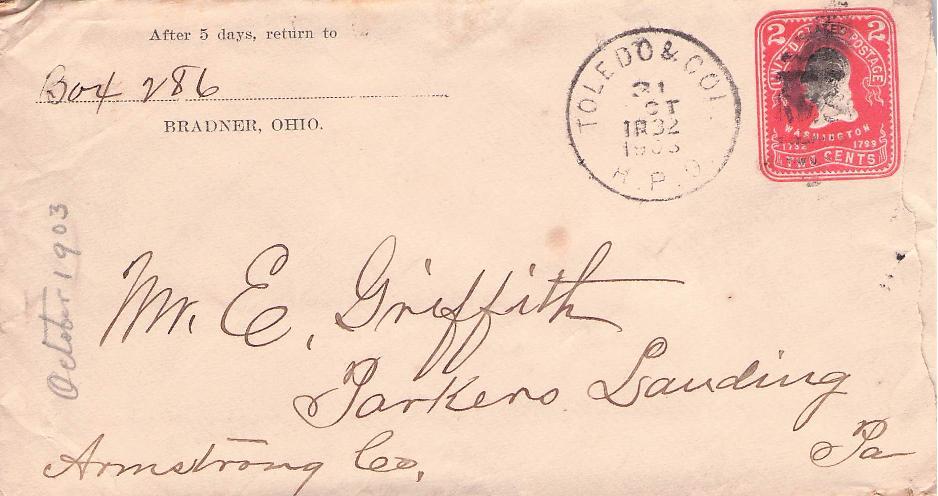 After 5 days, return to
Box 286
BRADNER, OHIO.
TOLEDO & COL.
31
OCT
1903
R.P.O.
2 2
UNITED STATES POSTAGE
WASHINGTON
1732 1799
TWO CENTS
October 1903
Mr. E. Griffith
Parkers Landing
Armstrong Co. Pa